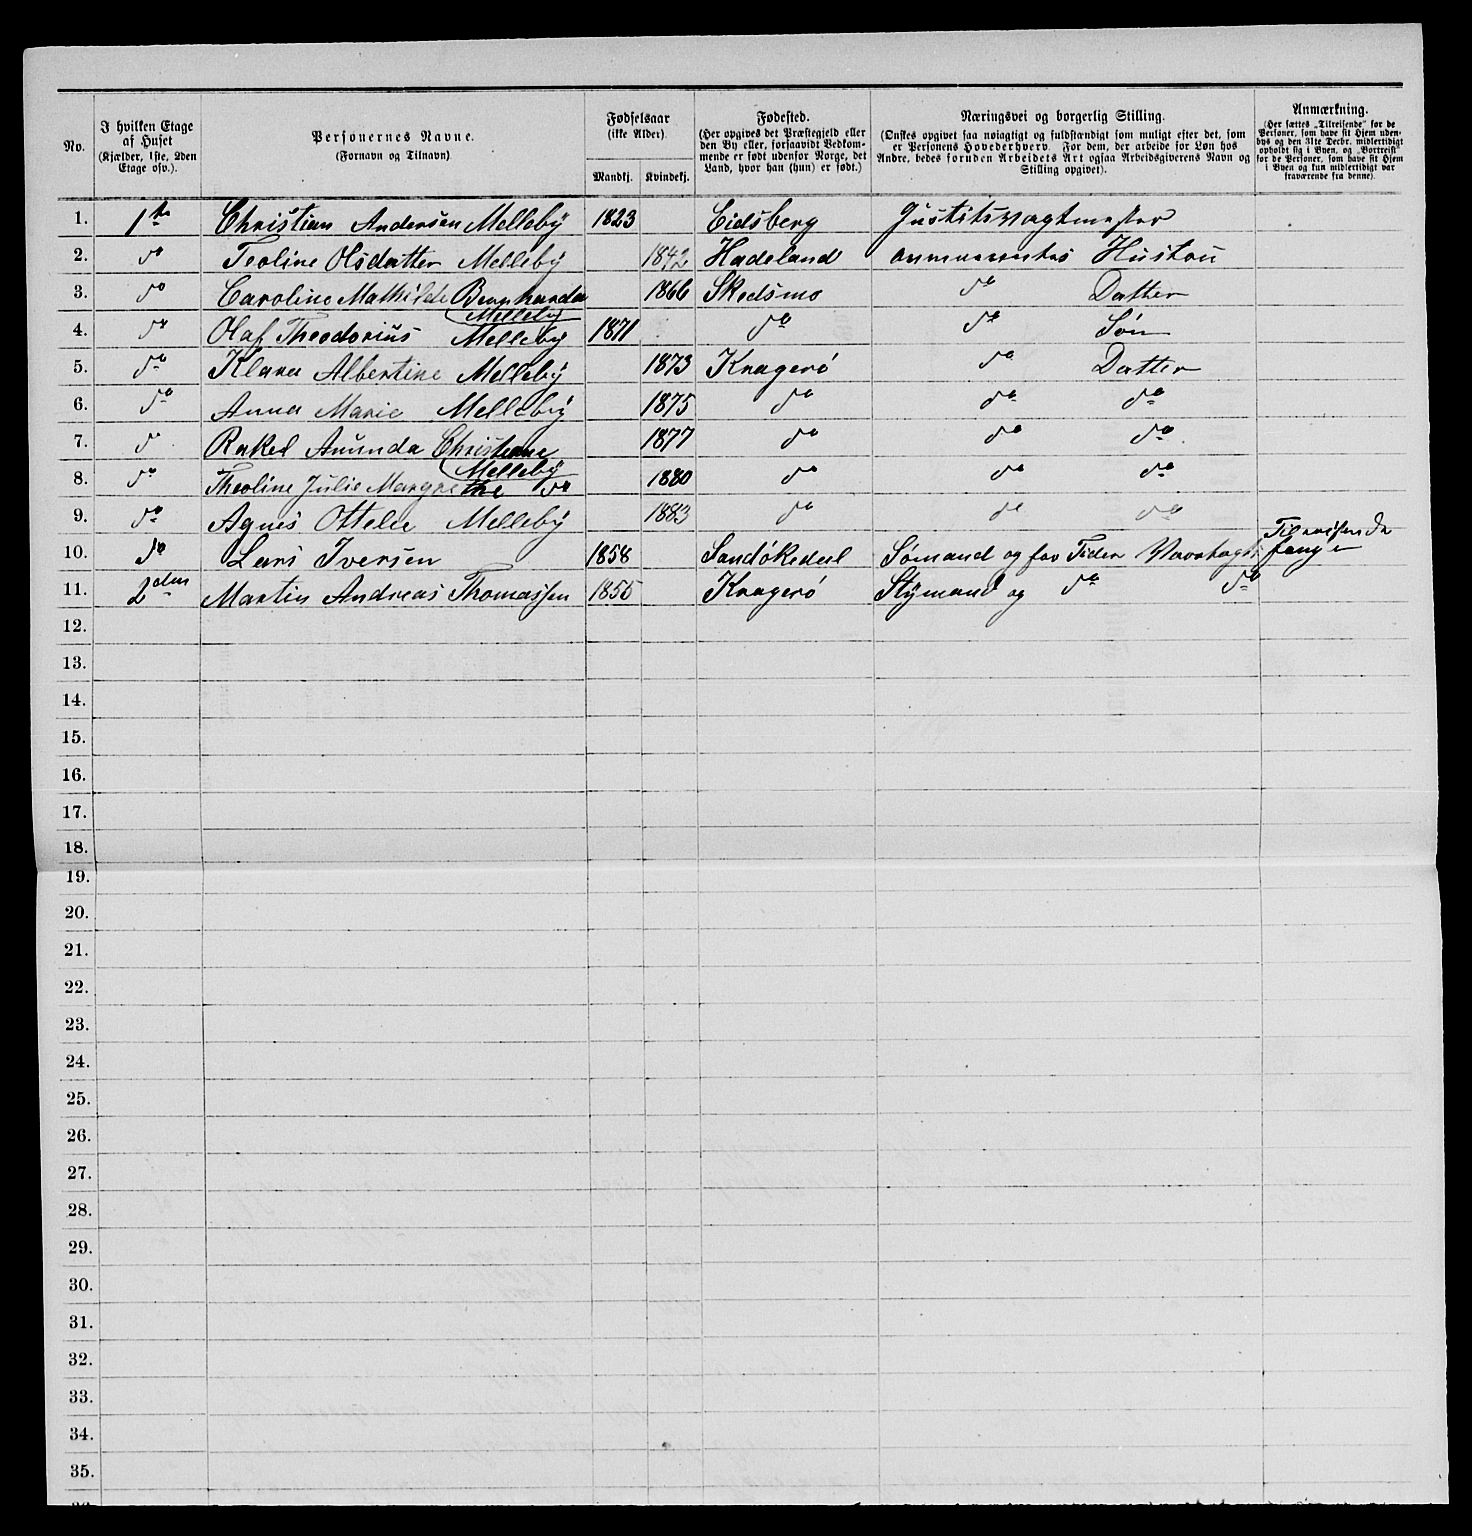 No.
I hvilken Etage af Huset (Kjælder, 1ste, 2den Etage osv.).
Personernes Navne. (Fornavn og Tilnavn)
Fødselsaar (ikke Alder).
Mandkj. Kvindekj.
Fødested. (Her opgives det Præstegjeld eller den By eller, forsaavidt Vedkommende er født udenfor Norge, det Land, hvor han (hun) er født.)
Næringsvei og borgerlig Stilling. (Ønskes opgivet saa nøiagtigt og fuldstændigt som muligt efter det, som er Personens Hovederhverv. For dem, der arbeide for Løn hos Andre, bedes foruden Arbeidets Art ogsaa Arbeidsgiverens Navn og Stilling opgivet).
Anmærkning. (Her sættes „Tilreisende" for de Personer, som have sit Hjem udenbys og den 31te Decbr. midlertidigt opholdt sig i Byen, og „Bortreist" for de Personer, som have sit Hjem i Byen og kun midlertidigt var fraværende fra denne).
1. 1te Christian Andersen Melleby 1823 Eidsberg Justitsvagtmester
2. do Teoline Olsdatter Melleby 1842 Hadeland Hustou
3. do Caroline Mathilde Bernharda Melleby 1866 Skedsmo do Datter
4. do Olaf Theodorius Melleby 1871 do do Søn
5. do Klara Albertine Melleby 1873 Kragerø do Datter
6. do Anna Marie Melleby 1875 do do do
7. do Rakel Amunda Christiane Melleby 1877 do do do
8. do Theoline Julie Margrethe do 1880 do do do
9. do Agnes Ottelie Melleby 1883 do do do
10. do Lars Iversen 1858 Sandøkedal Sømand og for Tiden Varetægts fange Tilreisende
11. 2den Martin Andreas Thomassen 1855 Kragerø Stymand og do do
12.
13.
14.
15.
16.
17.
18.
19.
20.
21.
22.
23.
24.
25.
26.
27.
28.
29.
30.
31.
32.
33.
34.
35.